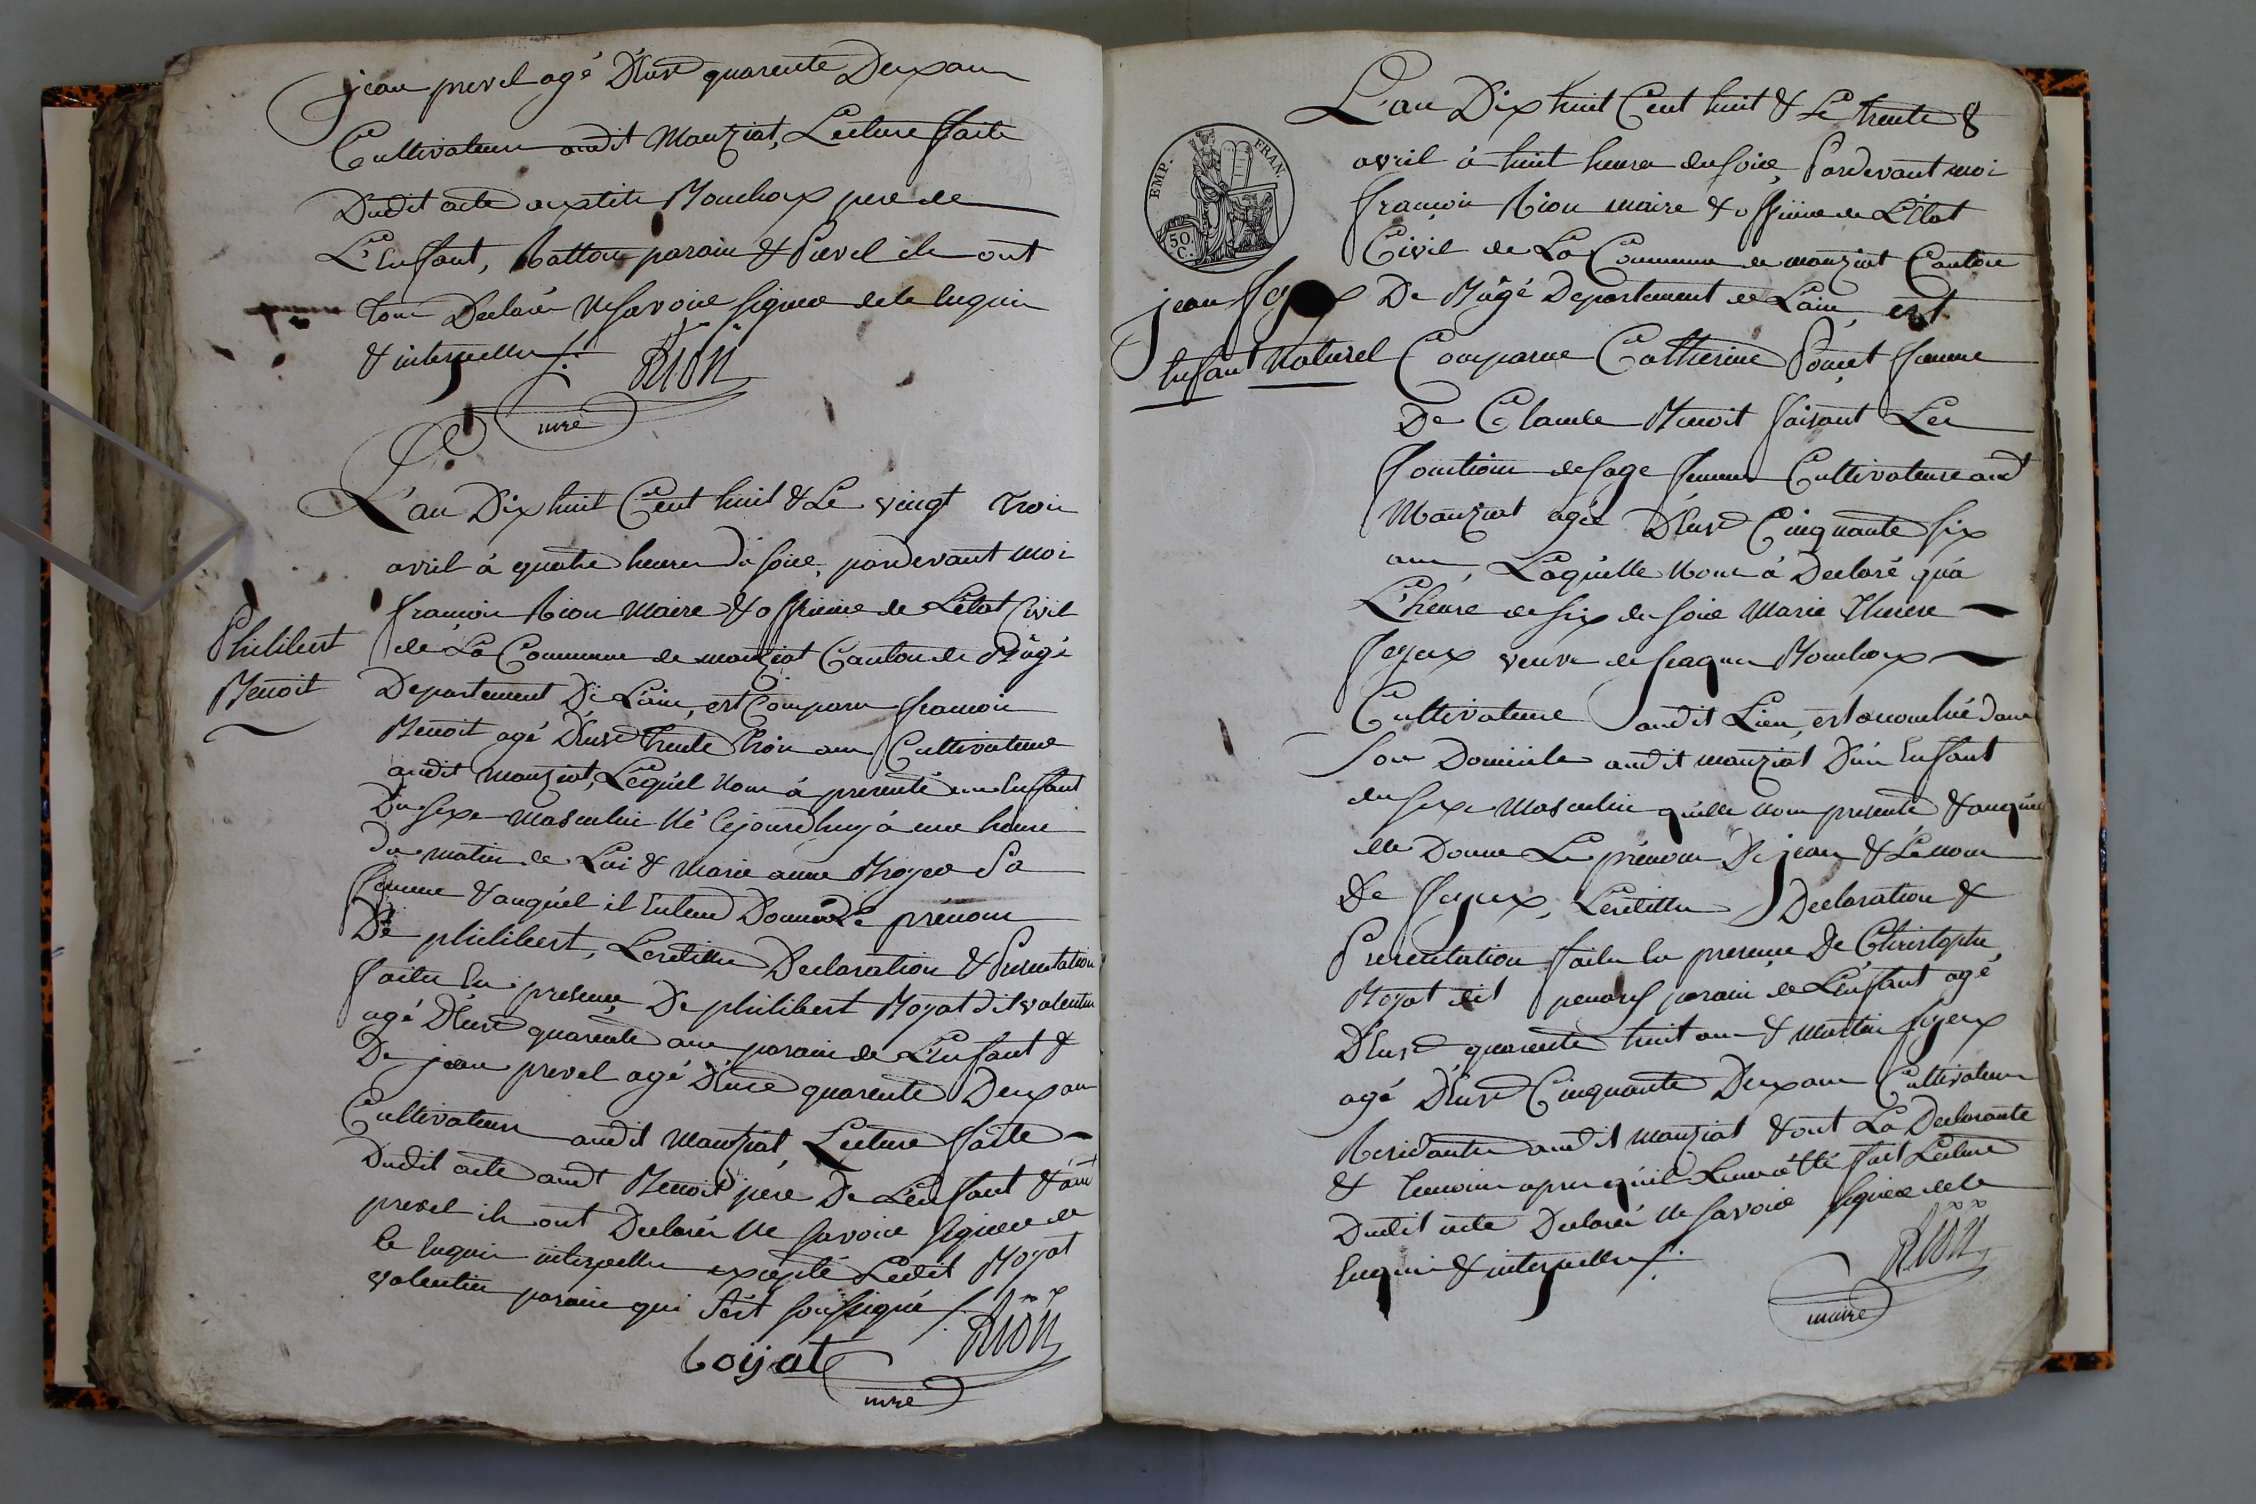 jean prevel agé D'Environ quarente Deux ans
Cultivateurs audit Manziat, Lecture faite
Dudit acte auxdits Bouchoux pere de
L'Enfant, Catton parain & Prevel ils ont
tous Declarés ne savoir signer de ce Enquis
& interpellés /.
RION
mre
L'an Dix huit Cent huit & Le vingt trois
avril à quatre heures du soire, pardevant moi
françois Rion Maire & officier de L'état Civil
de La Commune de manziat Canton de Bâgé
Departement De L'ain, est Comparu françois
Benoit agé D'Environ trente trois ans Cultivateur
audit Manziat, Lequel nous à presenté un Enfant
Du sexe Masculin Né Cejourd'huy à une heure
du matin de Lui & Marie anne Broyer Sa
femme & auquel il Entend Donner Le prénom
De philibert, Lesdittes Declaration & Presentation
faites En presence De philibert Boyat dit valentin
agé D'Environ quarente ans parain de L'Enfant &
De jean prevel agé D'Environ quarente Deux ans
Cultivateurs audit Manziat, Lecture faite
Dudit acte audt Benoit pere De L'Enfant & audt
prevel ils ont Declarés Ne savoir signer de
ce Enquis interpellés excepté Ledit Boyat
valentin parain qui s'est soussigné /.
boyat
RION
mre
Philibert
Benoit
EMP.
FRAN.
50.
C.
L'an Dix huit Cent huit & Le trente
avril à huit heures du soire, Pardevant moi
françois Rion maire & officier de L'état
Civil de La Commune de manziat Canton
De Bâgé Departement de L'ain, est
jean fey x
Enfant Naturel
Comparue Catherine Poncet femme
De Claude Benoit faisant Les
fonctions de sage femme Cultivateurs audt
Manziat agée D'Environ Cinquante six
ans, Laquelle Nous à Declaré qu'à
L'heure de six du soire Marie
feyeux veuve de Jaques Bouchoux
Cultivateure audit Lieu, est accouchée dans
son Domicile audit manziat D'un Enfant
du sexe Masculin qu'elle nous presente & auquel
elle Donne Le prénom De jean & Le nom
De feyeux, Lesdittes Declaration &
Presentation faites En presence De Christophe
Boyat dit parain de L'enfant agé
D'Environ quarente huit ans & Martin feyeux
agé D'Environ Cinquante Deux ans Cultivateurs
Residants audit Manziat & ont La Declarante
& temoins apres qu'il Leur à été fait Lecture
Dudit acte Declarés Ne savoir signer de ce
Enquis & interpellés /.
RION
maire